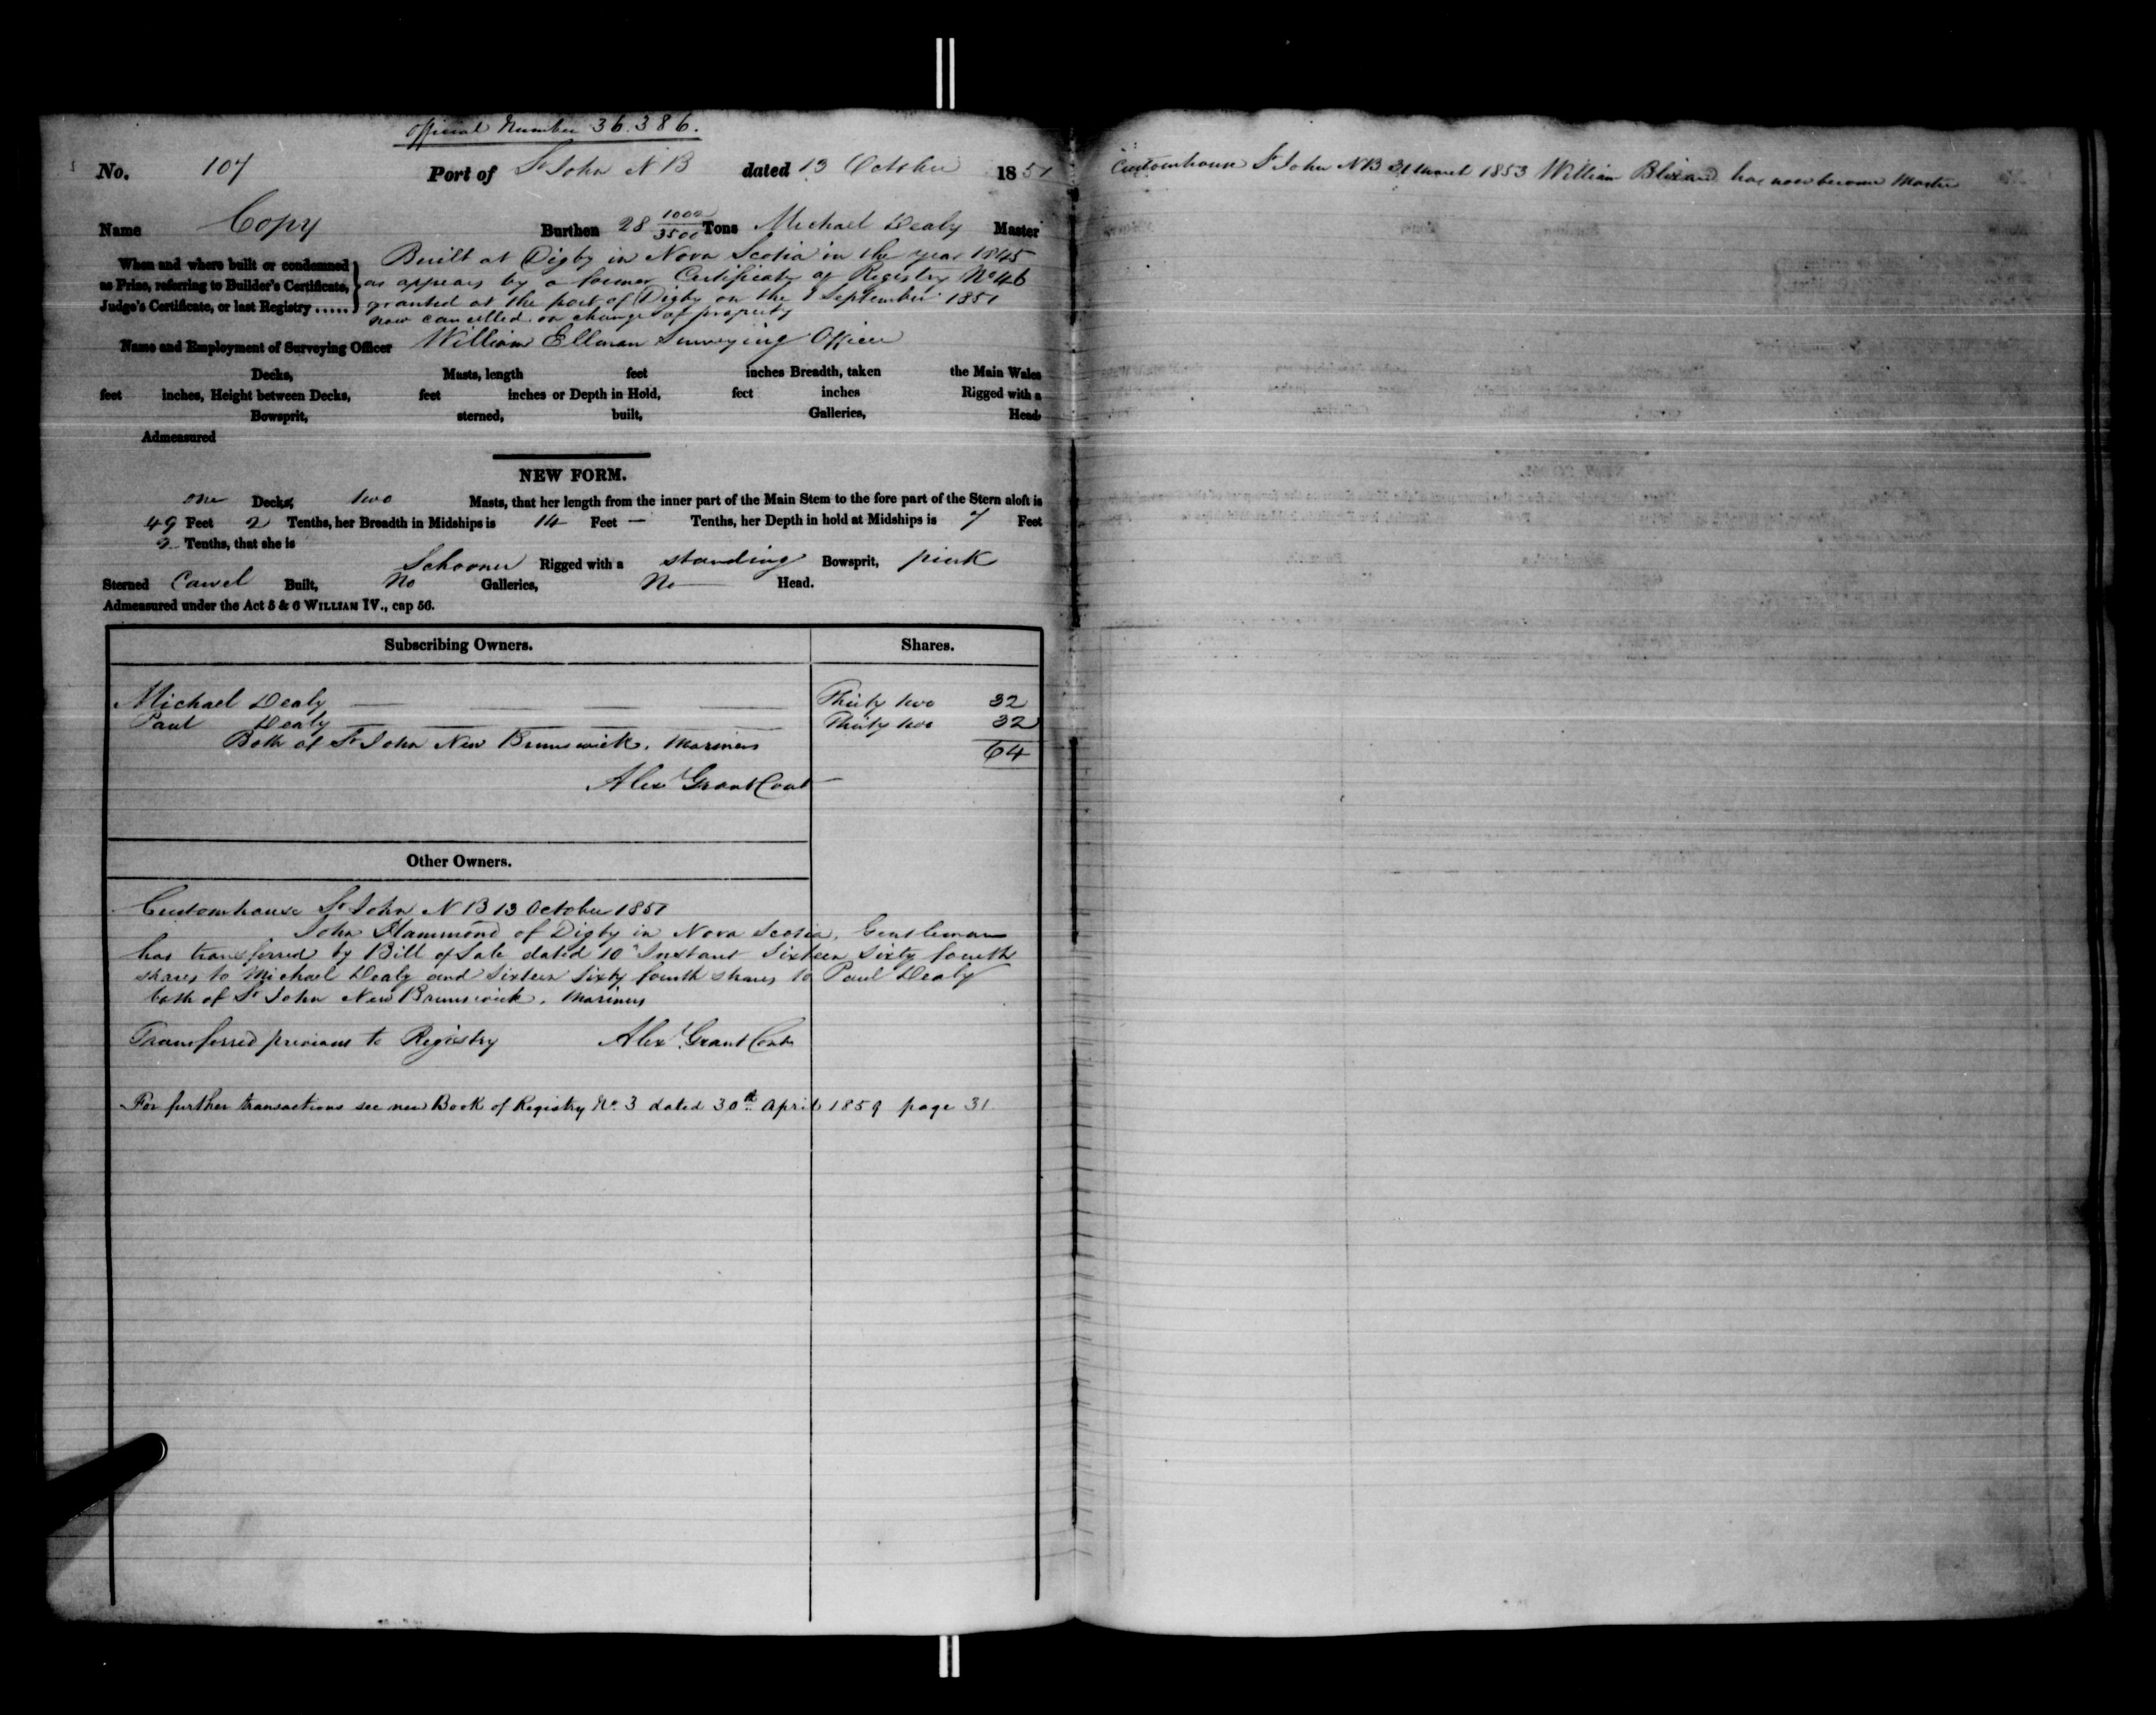 Official Number 36.386.
No. 107 Port of St John N B dated 13 October 1851
Name Copy Burthen 28 1000/3500 Tons Michael Dealy Master
When and where built or condemned as Prize, referring to Builder's Certificate, Judge's Certificate, or last Registry .....
Built at Digby in Nova Scotia in the year 1845
as appears by a former Certificate of Registry No 46
granted at the port of Digby on the 1 September 1851
now cancelled on change of property
Name and Employment of Surveying Officer William Ellman Surveying Officer
Decks, Masts, length feet inches Breadth, taken the Main Wales
feet inches, Height between Decks, feet inches or Depth in Hold, feet inches Rigged with a
Bowsprit, sterned, built, Galleries, Head
Admeasured
NEW FORM.
one Decks, two Masts, that her length from the inner part of the Main Stem to the fore part of the Stern aloft is
49 Feet 2 Tenths, her Breadth in Midships is 14 Feet — Tenths, her Depth in hold at Midships is 7 Feet
2 Tenths, that she is
Schooner Rigged with a standing Bowsprit, pink
Sterned Carvel Built, No Galleries, No Head.
Admeasured under the Act 5 & 6 WILLIAM IV., cap 56.
Subscribing Owners. Shares.
Michael Dealy Thirty two 32
Paul Dealy Thirty two 32
Both of St John New Brunswick, Mariners 64
Alexr Grant Cont
Other Owners.
Customhouse St John N B 13 October 1851
John Hammond of Digby in Nova Scotia, Gentleman
has transferred by Bill of Sale dated 10" Instant Sixteen Sixty fourth
shares to Michael Dealy and Sixteen Sixty fourth shares to Paul Dealy
both of St John New Brunswick, Mariners
Transferred previous to Registry Alexr Grant Cont
For further transactions see new Book of Registry No. 3 dated 30th April 1859 page 31
Customhouse St John N B 31 March 1853 William Blizard has now become Master